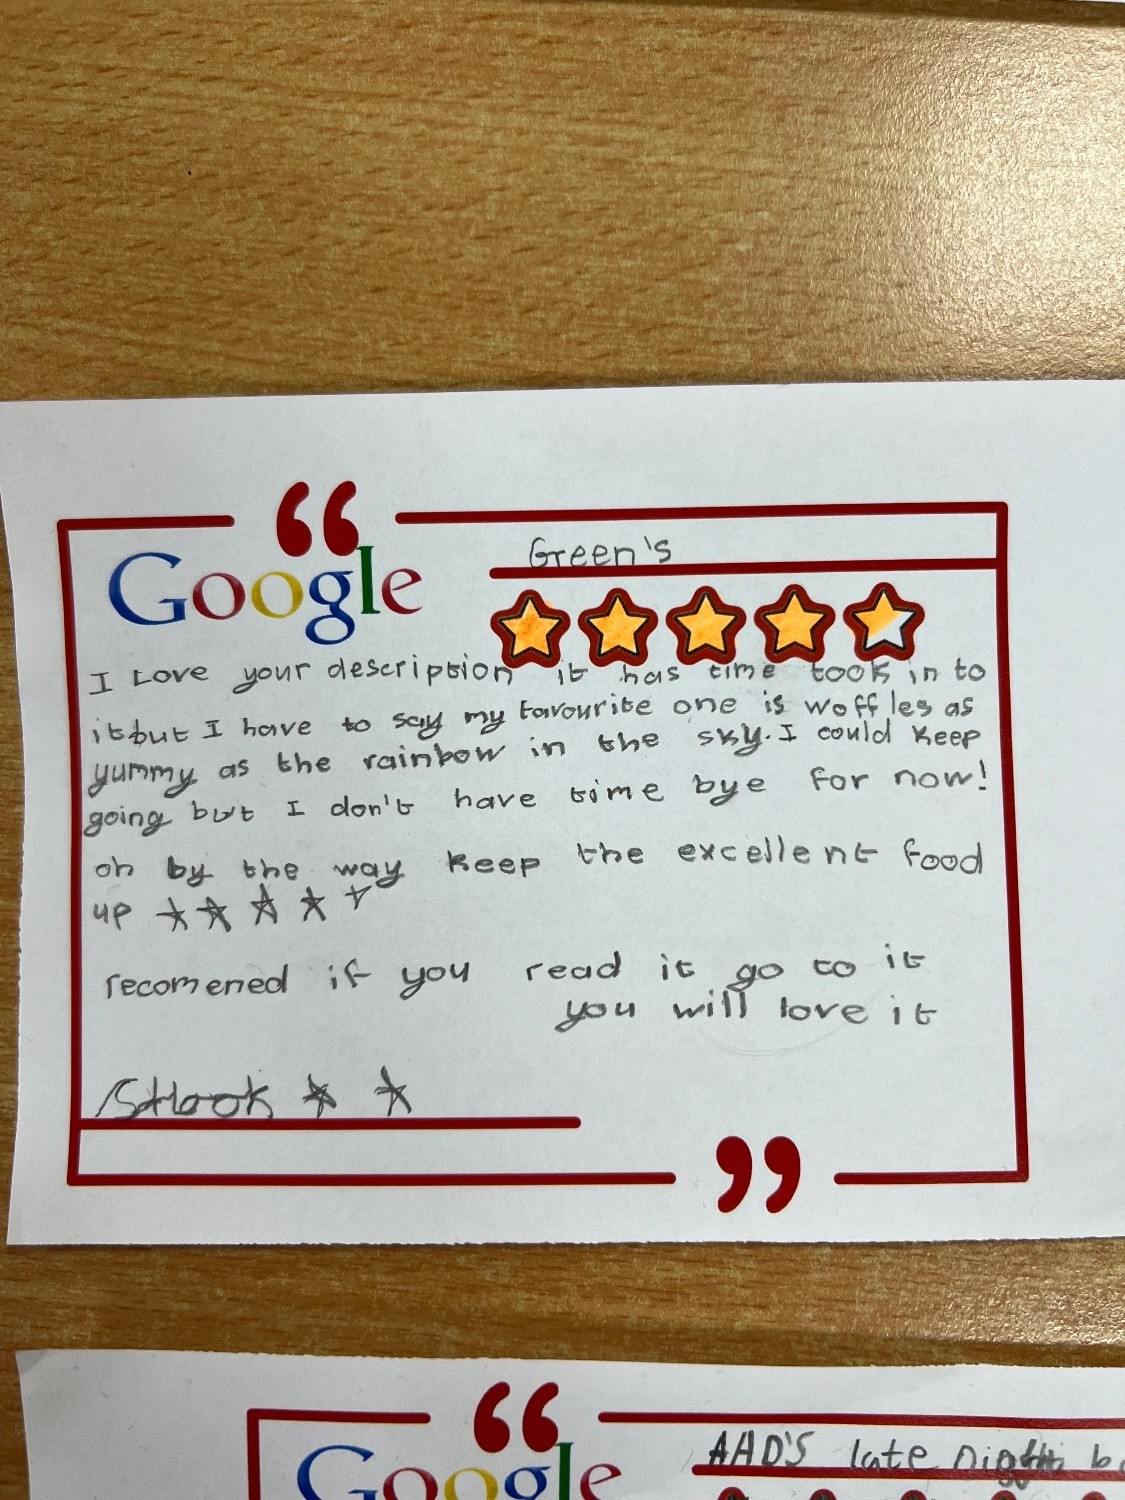 Google
Green's
I Love your description it has time took in to
it but I have to say my favourite one is woffles as
yummy as the rainbow in the sky. I could keep
going but I don't have time bye for now!
oh by the way keep the excellent food
up
recomened if you read it go to it
you will love it
Google
AHD'S late night